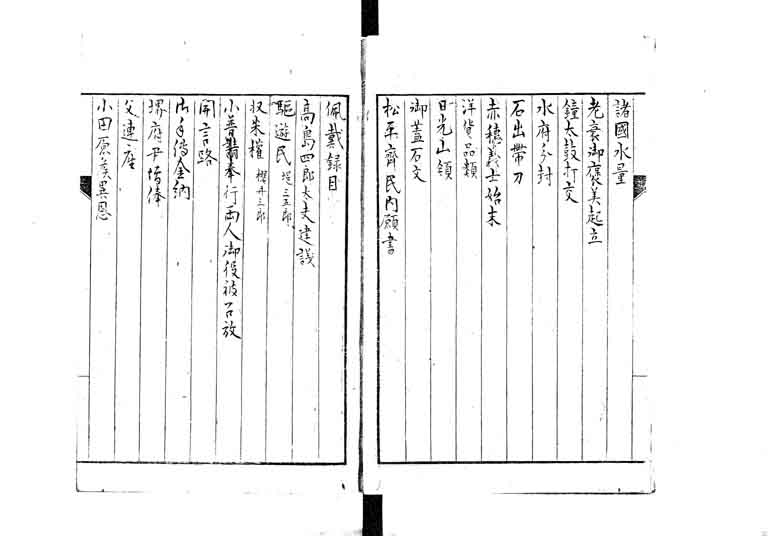 諸國水量
老衰御褒美起立
鐘太鼓打交
水府分封
石出帶刀
赤穗義士始末
洋貨品類
日光山領
御蓋石文
松平齊民内願書
佩戴録目
高島四郎太夫建議
驅遊民 堤三五郎
収朱権 櫻井三郎
小普請奉行両人御役被召放
開言路
御手傳金納
堺府尹増俸
父連座
小田原侯異恩